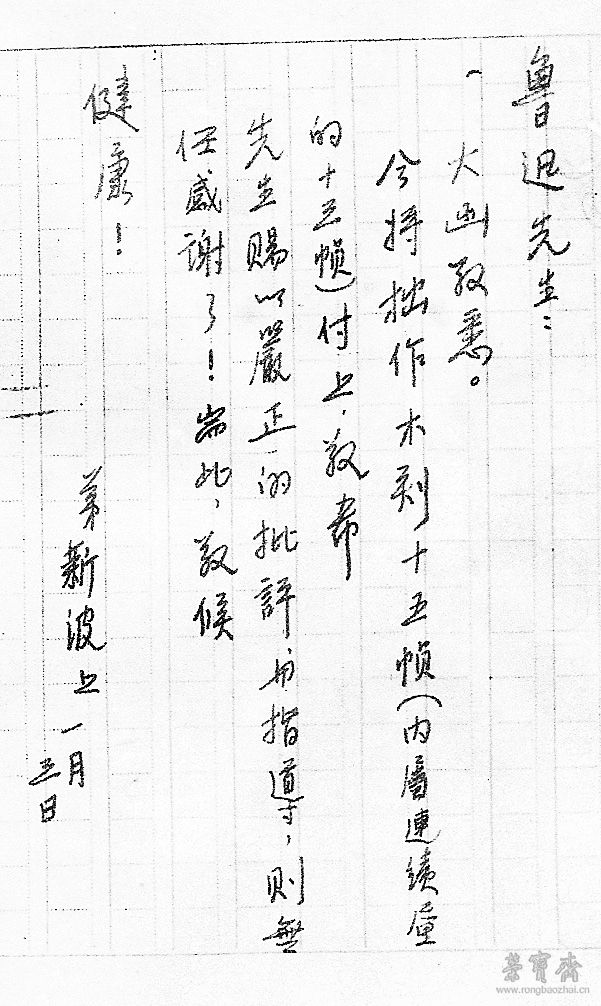 魯迅先生：
一 大函敬悉。
今将拙作木刻十五幀(内屬連續畫
的十三幀)付上，敬希
先生賜以嚴正的批評与指導，则無
任感谢了！耑此，敬候
健康！
弟新波上 一月
三日
荣寶齋
www.rongbaozhai.cn